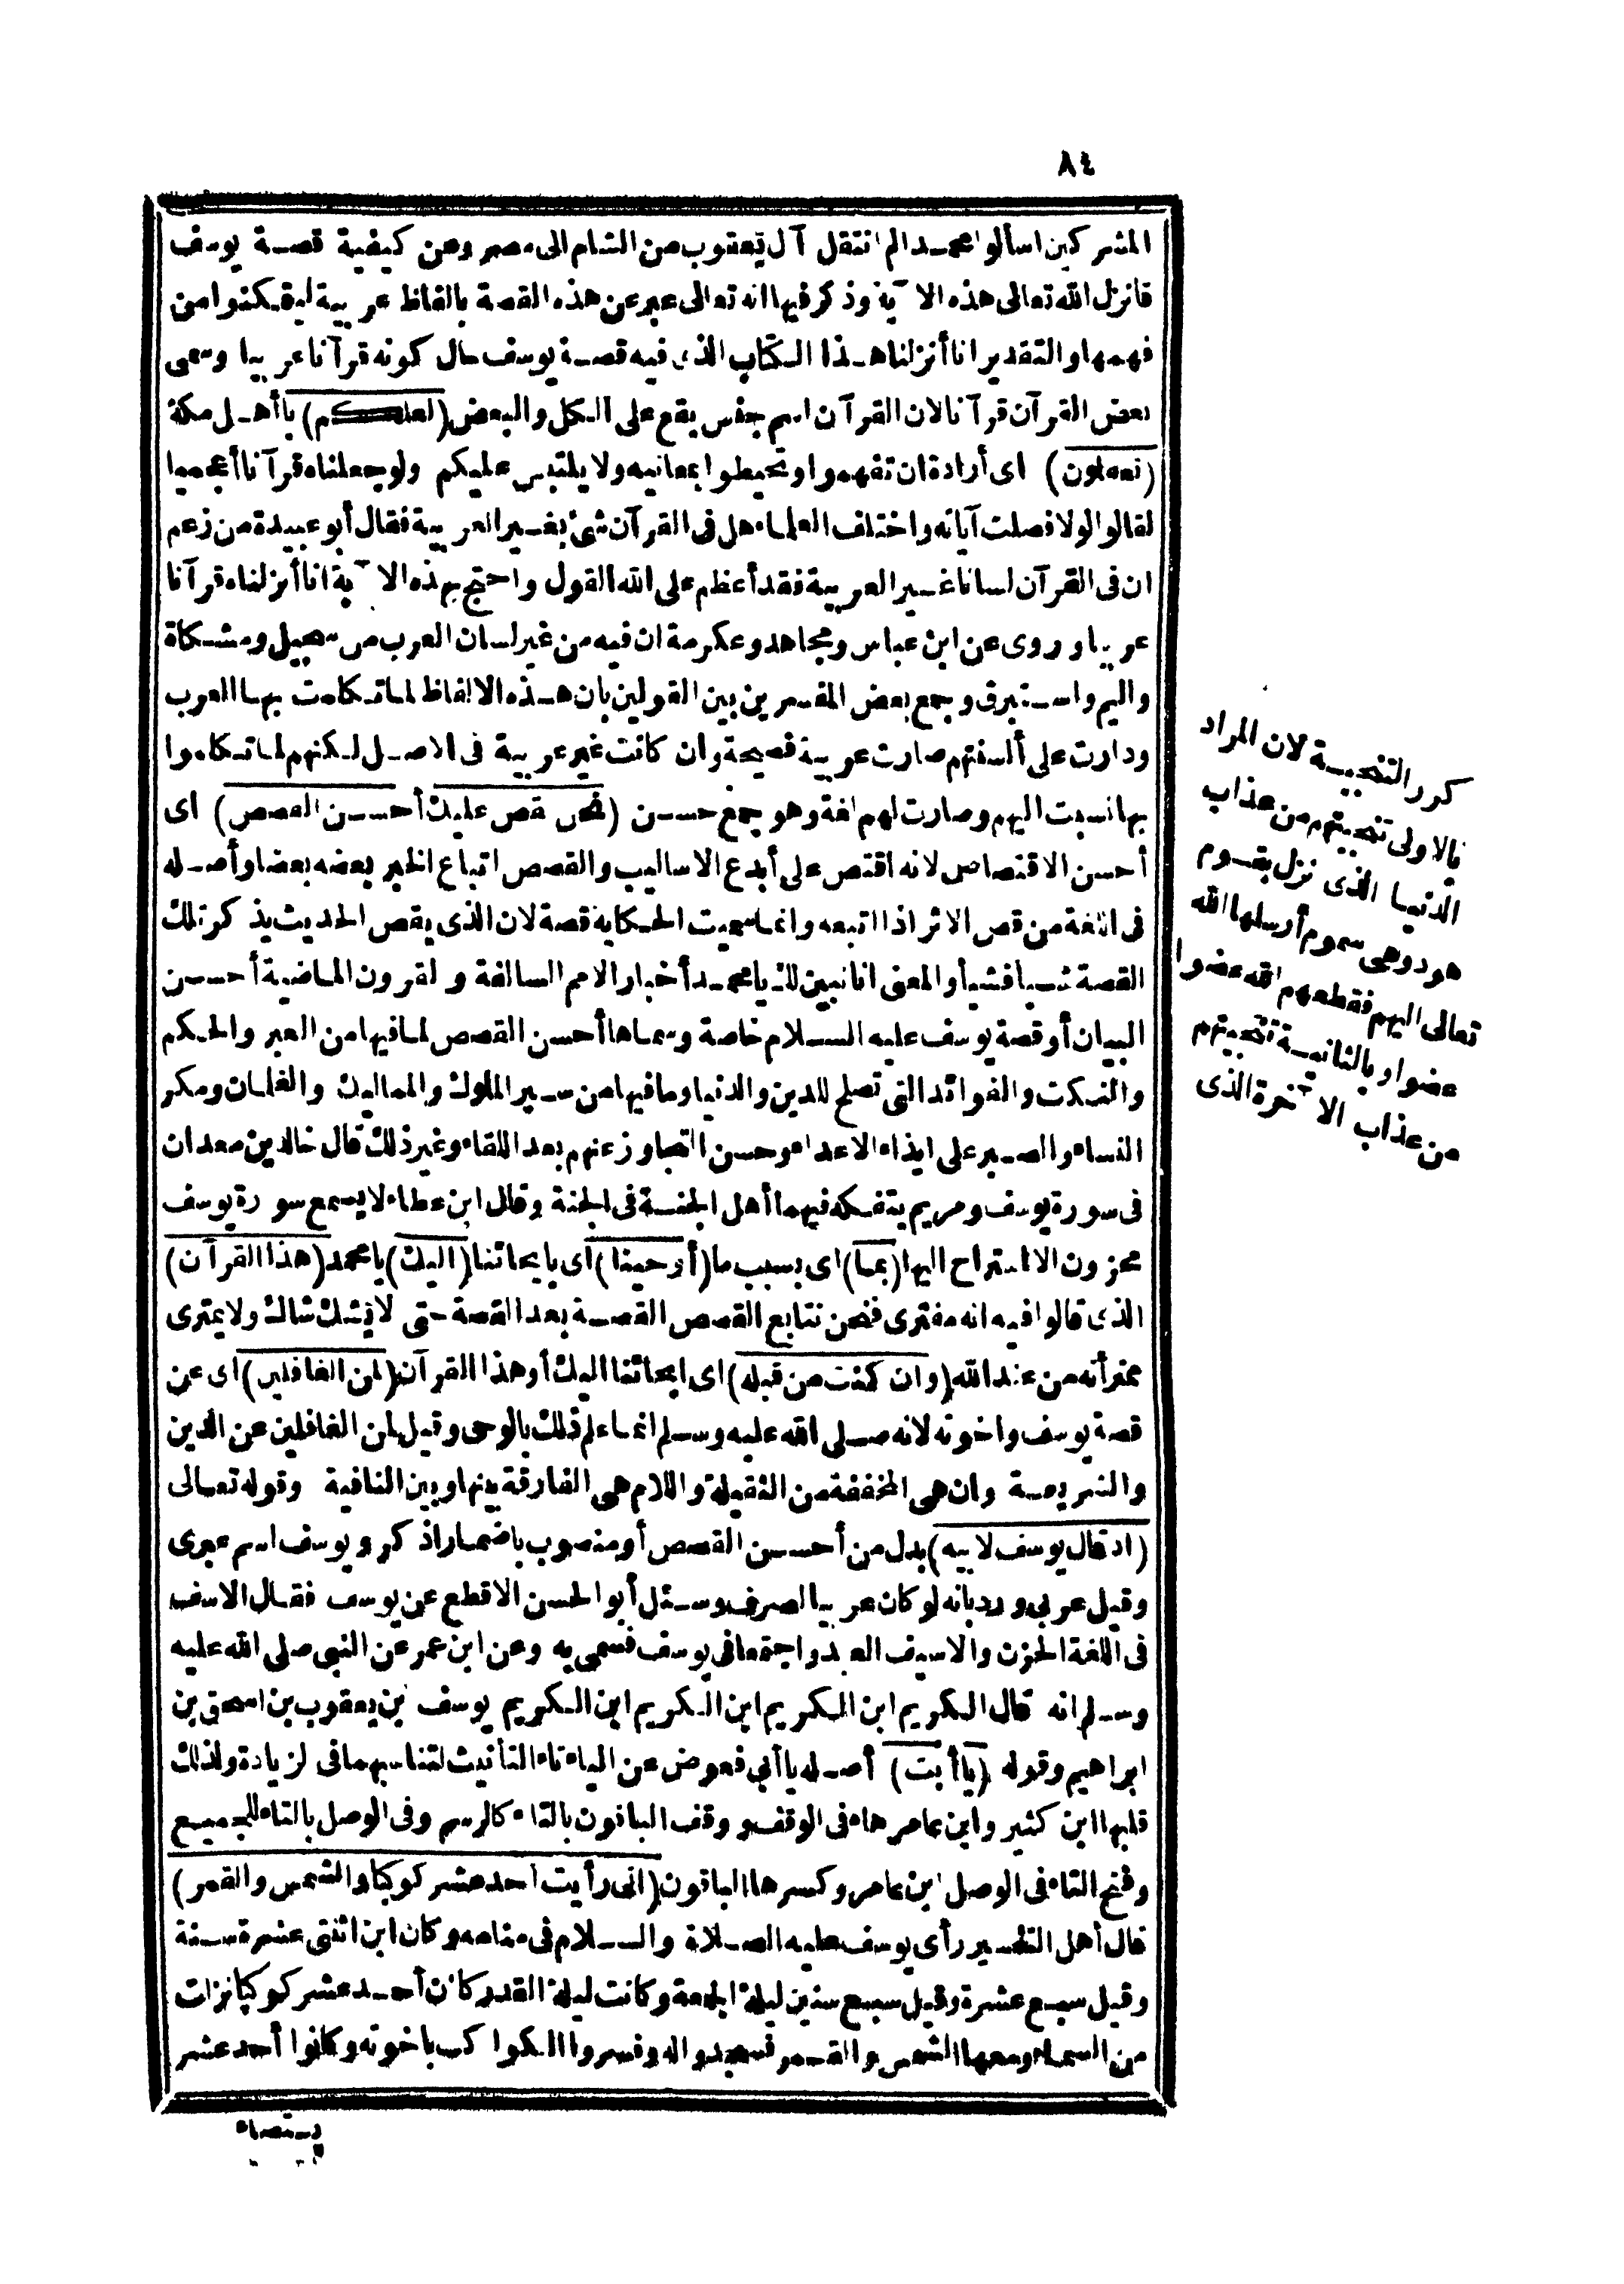 ٨٤
المشركين اسألوا محمدا لم انتقل آل يعقوب من الشام الى مصر وعن كيفية قصة يوسف
فانزل الله تعالى هذه الآية وذكر فيها انه تعالى عبر عن هذه القصة بالفاظ عربية ليتمكنوا من
فهمها والتقدير انا أنزلنا هذا الكتاب الذى فيه قصة يوسف حال كونه قرآنا عربيا وسمى
بعض القرآن قرآنا لان القرآن اسم جنس يقع على الكل والبعض (لعلكم) يا أهل مكة
(تعقلون) اى أرادة ان تفهموا وتحيطوا بمعانيه ولا يلتبس عليكم ولو جعلناه قرآنا أعجميا
لقالوا لولا فصلت آياته واختلف العلماء هل فى القرآن شئ بغير العربية فقال أبو عبيدة من زعم
ان فى القرآن لسانا غير العربية فقد أعظم على الله القول واحتج بهذه الآية انا أنزلناه قرآنا
عربيا وروى عن ابن عباس ومجاهد وعكرمة ان فيه من غير لسان العرب من سجيل ومشكاة
واليم واستبرق وجمع بعض المفسرين بين القولين بان هذه الالفاظ لما تكلمت بها العرب
ودارت على ألسنتهم صارت عربية فصيحة وان كانت غير عربية فى الاصل لكنهم لما تكلموا
بها نسبت اليهم وصارت لهم لغة وهو جمع حسن (نحن نقص عليك أحسن القصص) اى
أحسن الاقتصاص لانه اقتص على أبدع الاساليب والقصص اتباع الخبر بعضه بعضا وأصله
فى اللغة من قص الاثر اذا اتبعه وانما سميت الحكاية قصة لان الذى يقص الحديث يذكر تلك
القصة شيأ فشيأ والمعنى انا نبين لك يا محمد أخبار الامم السالفة والقرون الماضية أحسن
البيان أو قصة يوسف عليه السلام خاصة وسماها أحسن القصص لما فيها من العبر والحكم
والنكت والفوائد التى تصلح للدين والدنيا وما فيها من سير الملوك والمماليك والغلمان ومكر
النساء والصبر على ايذاء الاعداء وحسن التجاوز عنهم بعد اللقاء وغير ذلك قال خالد بن معدان
فى سورة يوسف ومريم يتفكه فيهما أهل الجنسة فى الجنة وقال ابن عطاء لا يسمع سورة يوسف
محزون الا استراح اليها (بما) اى بسبب ما (أوحينا) اى بايحائنا (اليك) يا محمد (هذا القرآن)
الذى قالوا فيه انه مفترى فنحن نتابع القصص القصة بعد القصة حتى لا يشك شاك ولا يمترى
ممترأنه من عند الله (وان كنت من قبله) اى ايحائنا اليك أو هذا القرآن (لمن الغافلين) اى عن
قصة يوسف واخوته لانه صلى الله عليه وسلم انما علم ذلك بالوحى وقيل لمن الغافلين عن الدين
والشريعة وان هى المخففة من الثقيلة واللام هى الفارقة بينها وبين النافية وقوله تعالى
(اذ قال يوسف لابيه) بدل من أحسن القصص أو منصوب باضمار اذكر ويوسف اسم عبرى
وقيل عربى ورد بانه لو كان عربيا لصرف وسئل أبو الحسن الاقطع عن يوسف فقال الاسف
فى اللغة الحزن والاسيف العبد واجتمعا فى يوسف فسمى به وعن ابن عمر عن النبى صلى الله عليه
وسلم انه قال الكريم ابن الكريم ابن الكريم ابن الكريم يوسف بن يعقوب بن اسحق بن
ابراهيم وقوله (يا أبت) أصله يا أبى فعوض عن الياء تاء التأنيث لتناسبهما فى الزيادة ولذلك
قلبها ابن كثير وابن عامر هاء فى الوقف ووقف الباقون بالتاء كالرسم وفى الوصل بالتاء للجميع
وفتح التاء فى الوصل ابن عامر وكسرها الباقون (انى رأيت أحد عشر كوكبا والشمس والقمر)
قال أهل التفسير رأى يوسف عليه الصلاة والسلام فى منامه وكان ابن اثنتى عشرة سنة
وقيل سبع عشرة وقيل سبع سنين ليلة الجمعة وكانت ليلة القدر كان أحد عشر كوكبا نزلت
من السماء ومعها الشمس والقمر فسجدوا له وفسروا الكواكب باخوته وكانوا أحد عشر
يستضاء
كرر التنجيسة لان المراد
بالاولى تنجيتهم من عذاب
الدنيا الذى نزل بقوم
هود وهى سموم أرسلها الله
تعالى اليهم فقطعهم الله عضوا
عضوا وبالثانية تنجيتهم
من عذاب الآخرة الذى